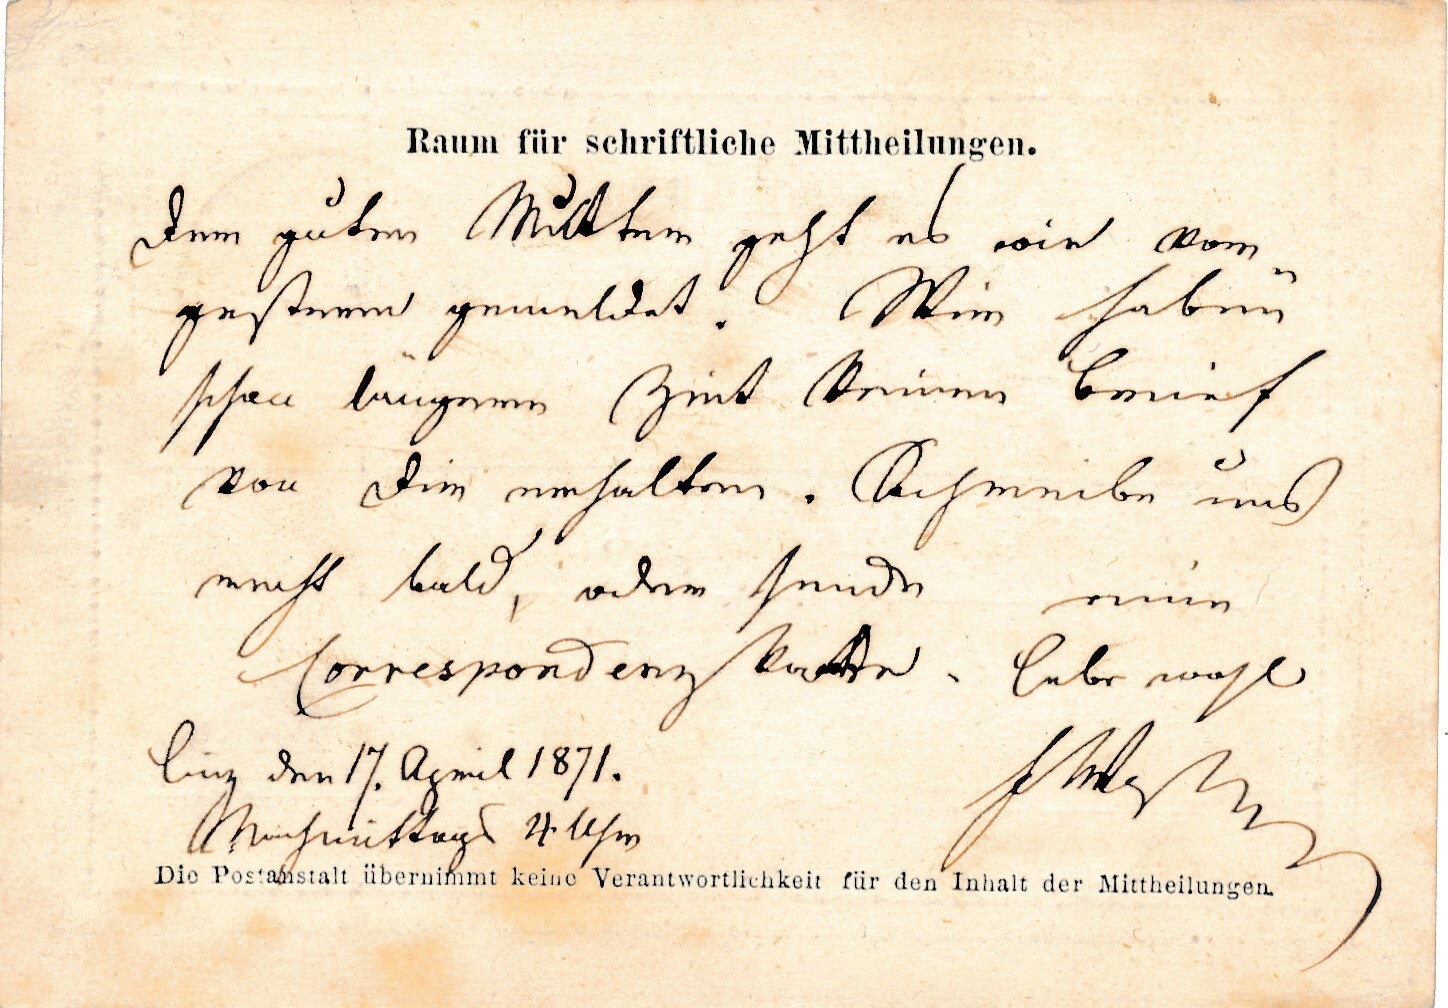 Raum für schriftliche Mittheilungen.
Der guten Mutter geht es wie vor
gestern gemeldet. Wir haben
schon längere Zeit keinen Brief
von Dir erhalten. Schreibe uns
recht bald, oder sende eine
Correspondenzkarte. Lebe wohl
Linz den 17. April 1871.
Nachmittags 4 Uhr
Die Postanstalt übernimmt keine Verantwortlichkeit für den Inhalt der Mittheilungen.